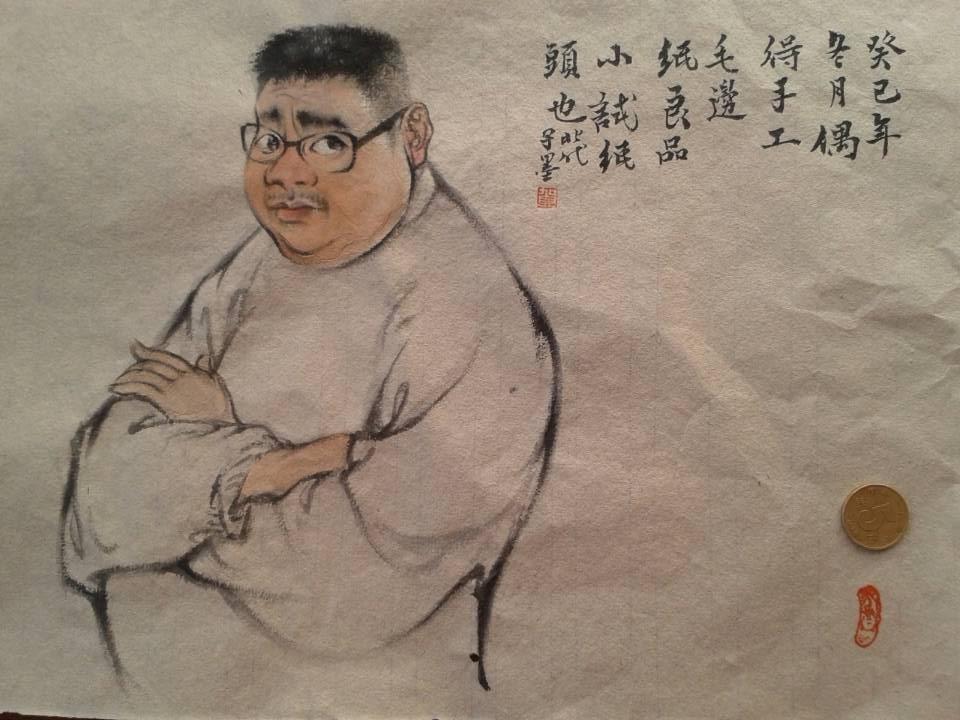 癸巳年
冬月偶
得手工
毛邊
紙良品
小試紙
頭也
子墨